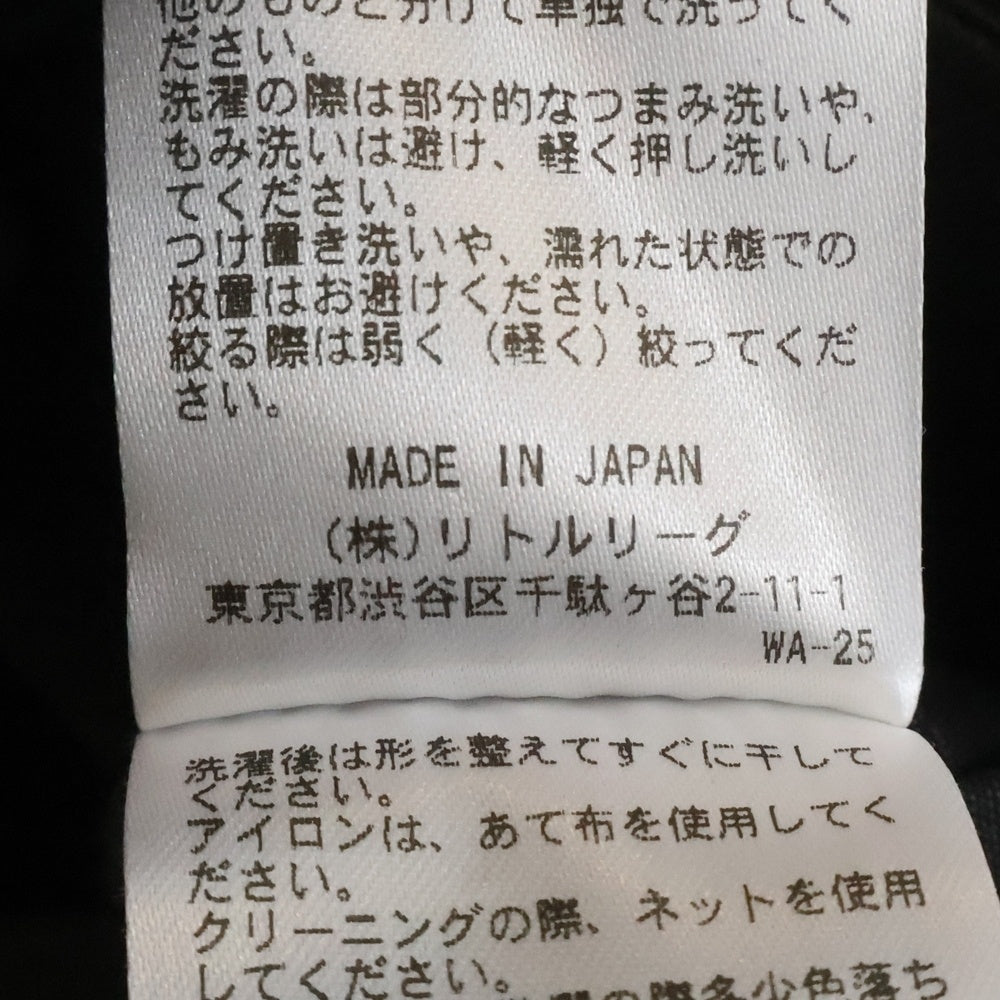 他のものと分けて単独で洗ってく
ださい。
洗濯の際は部分的なつまみ洗いや、
もみ洗いは避け、軽く押し洗いし
てください。
つけ置き洗いや、濡れた状態での
放置はお避けください。
絞る際は弱く（軽く）絞ってくだ
さい。
MADE IN JAPAN
(株)リトルリーグ
東京都渋谷区千駄ヶ谷2-11-1
WA-25
洗濯後は形を整えてすぐに干して
ください。
アイロンは、あて布を使用してく
ださい。
クリーニングの際、ネットを使用
してください。
の際多少色落ち